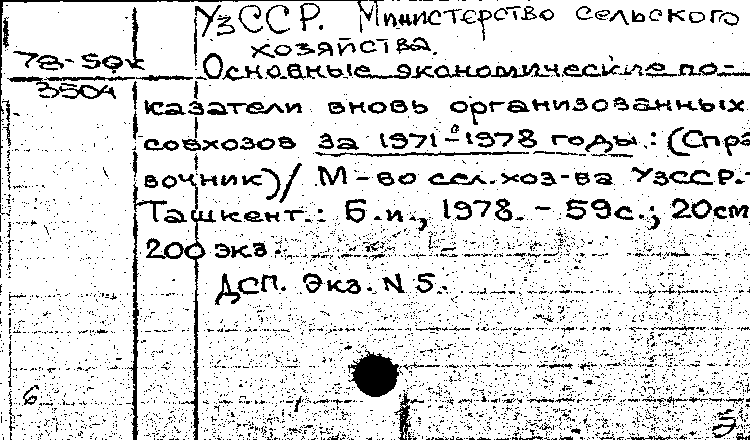 УзССР. Министерство сельского
хозяйства.
78-50к
3504
Основные экономические по-
казатели вновь организованных
совхозов за 1971-1978 годы.: (Спра
вочник)/ М-во сел.хоз-ва УзССР.-
Ташкент.: Б.и., 1978. - 59с.; 20см
200 экз.
ДСП. Экз. N 5.
6
5